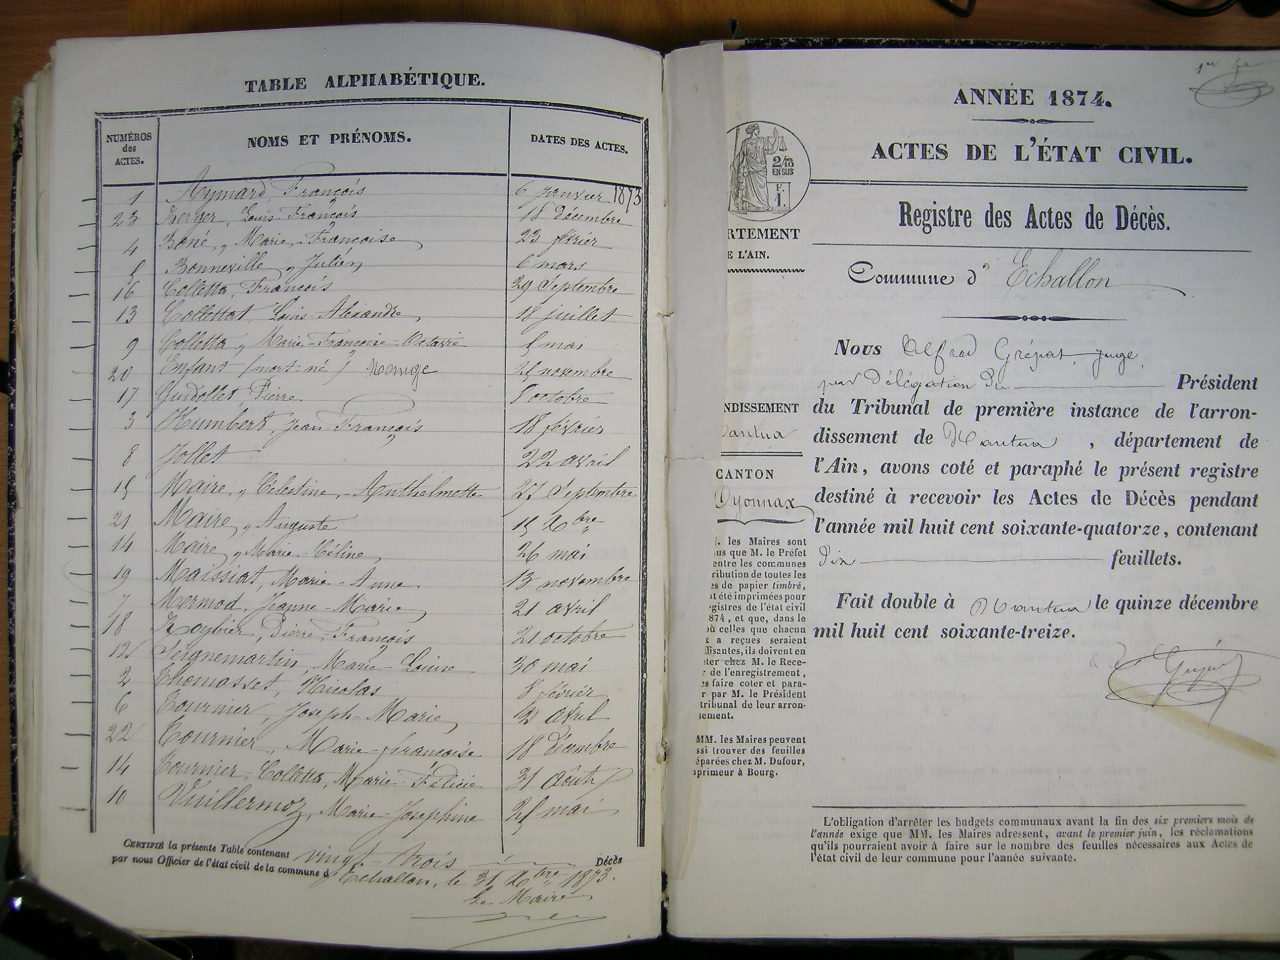 TABLE ALPHABÉTIQUE.
NUMÉROS des ACTES. NOMS ET PRÉNOMS. DATES DES ACTES.
1 Aymard, François 6 janvier 1873
23 Berger, Louis François 18 décembre
4 Boné, Marie-Françoise 23 février
Bonneville, Julien 6 mars
16 Colletta, François 29 Septembre
13 Collettat, Louis-Alexandre 18 juillet
9 Colletta, Marie-Françoise 5 mai
20 Enfant (mort-né) 25 novembre
17 Guidollet, Pierre 5 octobre
3 Humbert, Jean François 18 février
8 Jollet 22 avril
15 Maire, Célestine, Anthelmette 27 Septembre
21 Maire, Auguste 15 Xbre
14 Maire, Marie-Céline 26 mai
19 Maissiat, Marie-Anne 13 novembre
7 Mermod, Jeanne-Marie 21 avril
18 Pierre-François 21 octobre
12 Seignemartin, Marie-Louise 30 mai
2 Thomasset, Nicolas 8 février
6 Tournier, Joseph-Marie 2 avril
22 Tournier, Marie-françoise 18 décembre
14 Tournier-Colletta, Marie-Félicie 31 Août
10 Vuillermoz, Marie-Josephine 25 mai
CERTIFIÉ la présente Table contenant vingt-trois Décès
par nous Officier de l'état civil de la commune d'Echallon, le 31 Xbre 1873.
Le Maire
ANNÉE 1874.
ACTES DE L'ÉTAT CIVIL.
2/10
EN SUS
F.
1.
Registre des Actes de Décès.
RTEMENT
E L'AIN.
Commune d'Echallon
Nous Alfred Grépat, juge
par Délégation du Président
du Tribunal de première instance de l'arron-
dissement de Nantua, département de
l'Ain, avons coté et paraphé le présent registre
destiné à recevoir les Actes de Décès pendant
l'année mil huit cent soixante-quatorze, contenant
Dix feuillets.
Fait double à Nantua le quinze décembre
mil huit cent soixante-treize.
NDISSEMENT
antua
CANTON
Oyonnax
. les Maires sont
us que M. le Préfet
entre les communes
ribution de toutes les
es de papier timbré,
t été imprimées pour
gistres de l'état civil
874, et que, dans le
ù celles que chacun
x a reçues seraient
fisantes, ils doivent en
ter chez M. le Rece-
r de l'enregistrement,
es faire coter et para-
r par M. le Président
tribunal de leur arron-
ement.
MM. les Maires peuvent
ssi trouver des feuilles
éparées chez M. Dufour,
primeur à Bourg.
L'obligation d'arrêter les budgets communaux avant la fin des six premiers mois de
l'année exige que MM. les Maires adressent, avant le premier juin, les réclamations
qu'ils pourraient avoir à faire sur le nombre des feuilles nécessaires aux Actes de
l'état civil de leur commune pour l'année suivante.